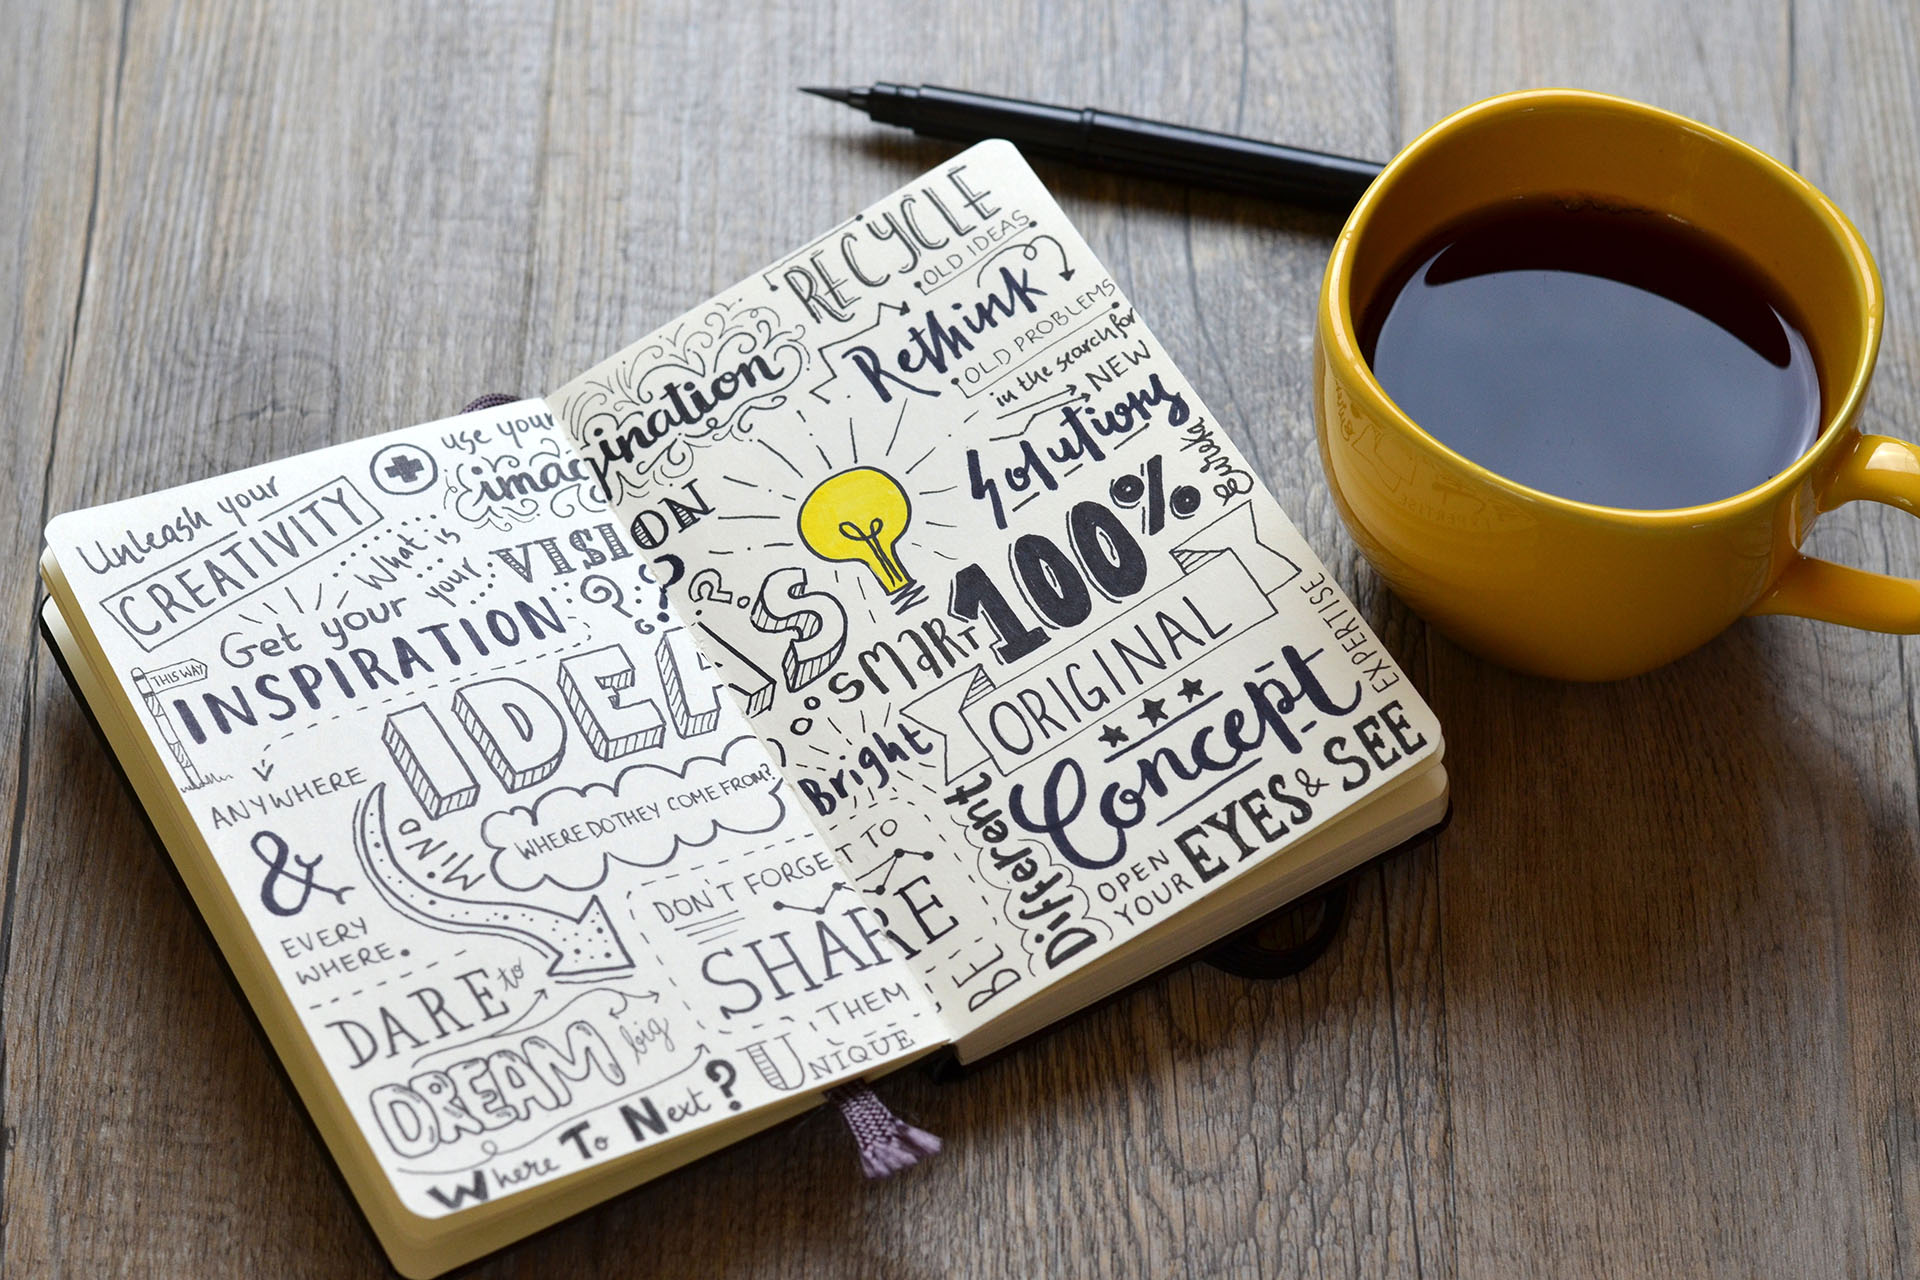 Unleash your
CREATIVITY
use your
imagination
Get your
INSPIRATION
What is
your
VISION
???
THIS WAY
ANYWHERE
&
EVERY
WHERE.
IDEAS
WHERE DO THEY COME FROM?
MIND
DON'T FORGET TO
SHARE
THEM
DARE to
DREAM big
Where To Next?
UNIQUE
RECYCLE
OLD IDEAS
Rethink
OLD PROBLEMS
in the search for
NEW
Solutions
Eureka
SMART
100%
ORIGINAL
Bright
Concept
EXPERTISE
BE
Different
OPEN
YOUR
EYES & SEE